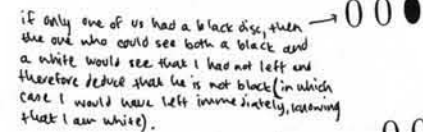 if only one of us had a black disc, then
the one who could see both a black and
a white would see that I had not left and
therefore deduce that he is not black (in which
case I would have left immediately, knowing
that I am white).